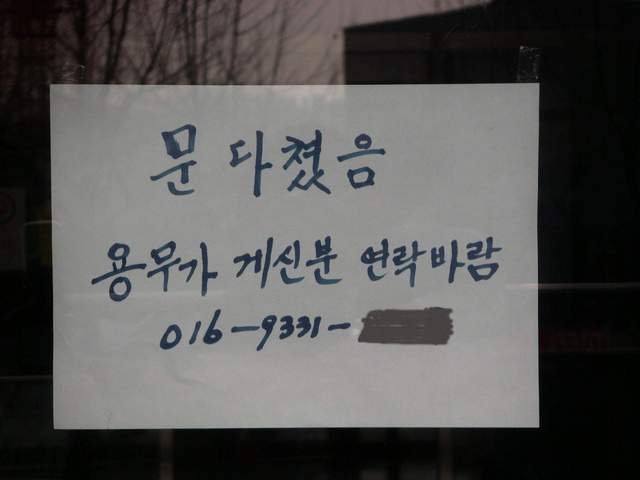 문 다쳤음
용무가 게신분 연락바람
016-9331-